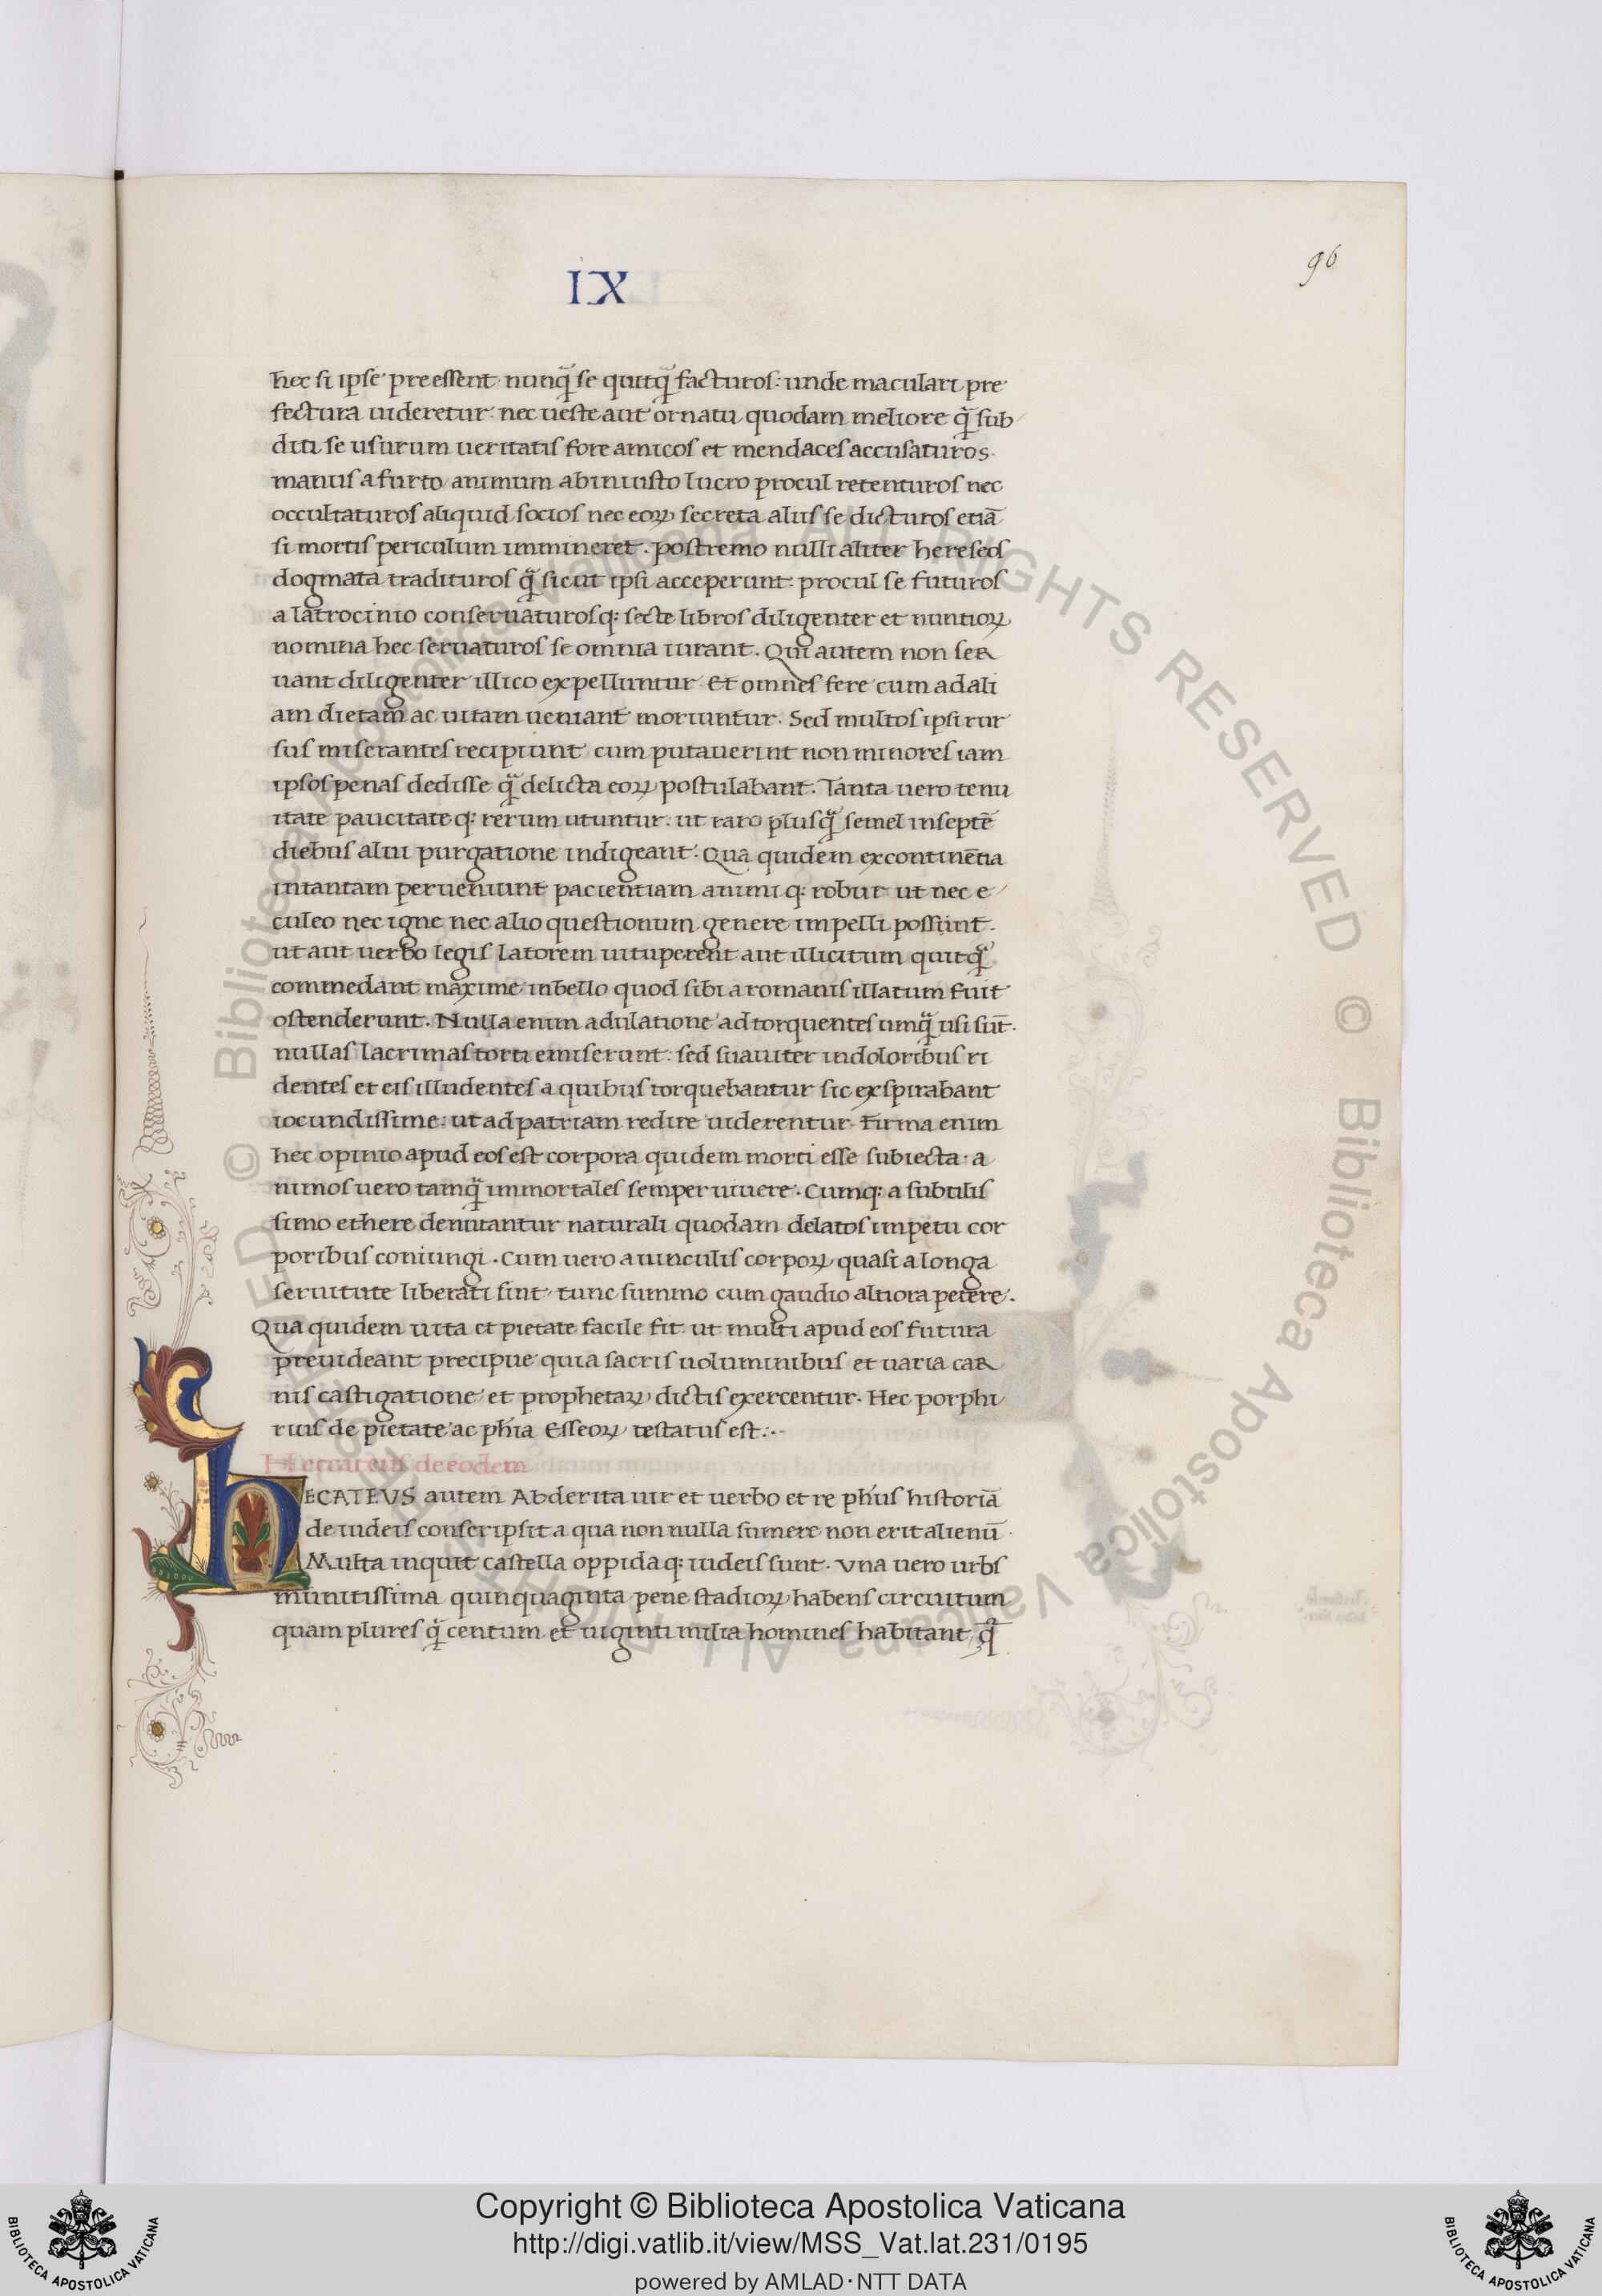 96
IX
hec si ipse preessent nunq̃ se quitq̃ facturos: unde maculari pre
fectura uideretur: nec ueste aut ornatu quodam meliore q̃ sub
diti se usurum ueritatis fore amicos et mendaces accusaturos.
manus a furto animum ab iniusto lucro procul retenturos nec
occultaturos aliquid socios nec eoꝝ secreta aliis se dicturos etiā
si mortis periculum immineret. postremo nulli aliter hereseos
dogmata tradituros q̃ sicut ipsi acceperunt: procul se futuros
a latrocinio conseruaturosq: secte libros diligenter et nuntioꝝ
nomina hec seruaturos se omnia iurant. Qui autem non ser
uant diligenter illico expelluntur. Et omnes fere cum ad ali
am dietam ac uitam ueniant moriuntur. Sed multos ipsi rur
sus miserantes recipiunt cum putauerint non minores iam
ipsos penas dedisse q̃ delicta eoꝝ postulabant. Tanta uero tenu
itate paucitate q: rerum utuntur: ut raro plusq̃ semel in septē
diebus alui purgatione indigeant. Qua quidem ex continētia
in tantam perueniunt pacientiam animi q: robur ut nec e
culeo nec igne nec alio questionum genere impelli possint.
ut aut uerbo legis latorem uituperent aut illicitum quitq̃
commedant maxime in bello quod sibi a romanis illatum fuit
ostenderunt. Nulla enim adulatione ad torquentes umq̃ usi sūt.
nullas lacrimas torti emiserunt: sed suauiter in doloribus ri
dentes et eis illudentes a quibus torquebantur sic exspirabant
iocundissime: ut ad patriam redire uiderentur. Firma enim
hec opinio apud eos est corpora quidem morti esse subiecta: a
nimos uero tamq̃ immortales semper uiuere. Cumq: a subtilis
simo ethere demittantur naturali quodam delatos impetu cor
poribus coniungi. Cum uero a uinculis corpoꝝ quasi a longa
seruitute liberati sint tunc summo cum gaudio altiora petere.
Qua quidem uita et pietate facile fit ut multi apud eos futura
preuideant precipue quia sacris uoluminibus et uaria car
nis castigatione et prophetaꝝ dictis exercentur. Hec porphi
rius de pietate ac phīa Esseoꝝ testatus est:.
Hecateus de eodem
hECATEVS autem Abderita uir et uerbo et re phūs historiā
de iudeis conscripsit a qua non nulla sumere non erit alienū.
Multa inquit castella oppida q: iudeis sunt. Vna uero urbs
munitissima quinquaginta pene stadioꝝ habens circuitum
quam plures q̃ centum et uiginti milia homines habitant q̃
Copyright © Biblioteca Apostolica Vaticana
http://digi.vatlib.it/view/MSS_Vat.lat.231/0195
powered by AMLAD·NTT DATA
BIBLIOTECA APOSTOLICA VATICANA
BIBLIOTECA APOSTOLICA VATICANA